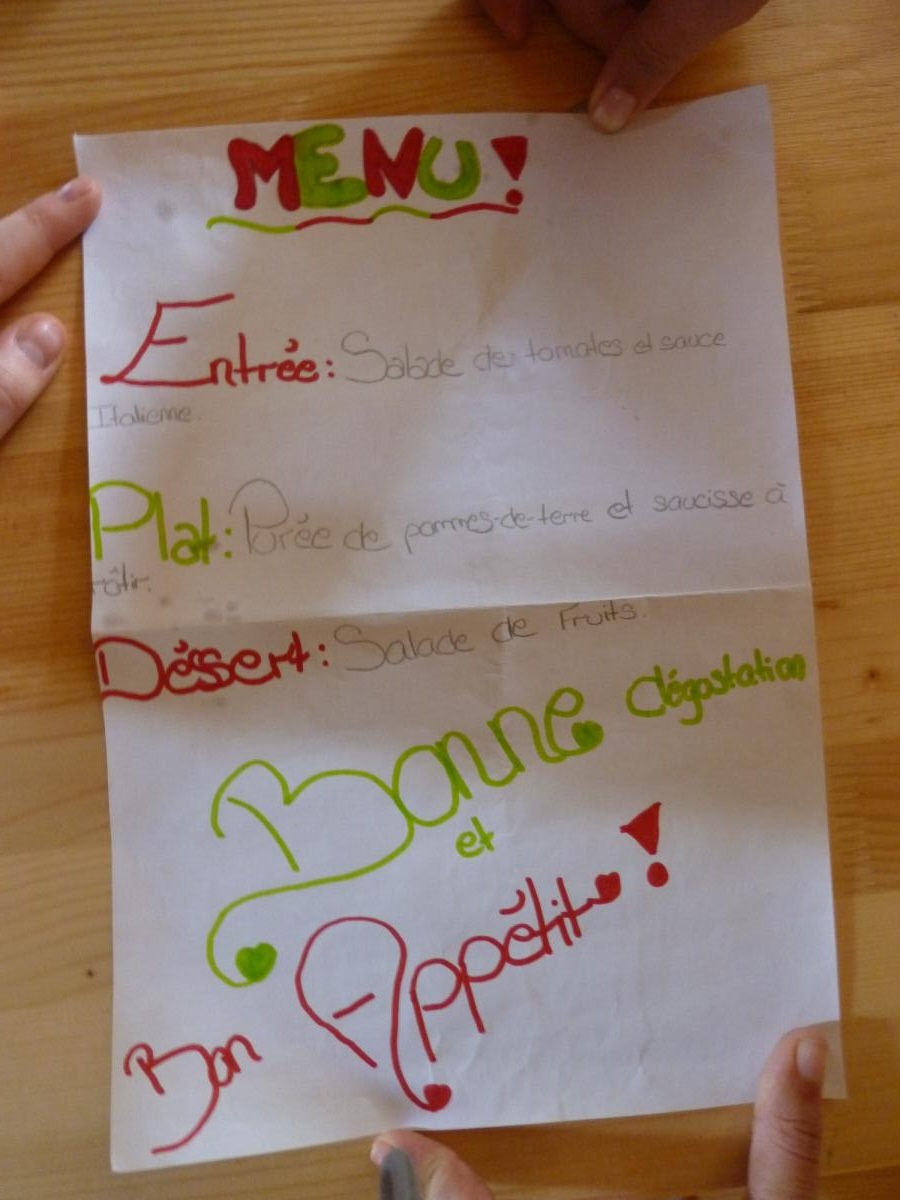 MENU!
Entrée: Salade des tomates et sauce
Italienne.
Plat: Purée de pommes-de-terre et saucisse à
rôtir.
Déssert: Salade de Fruits.
Bonne dégustation
et
Bon Appétit!